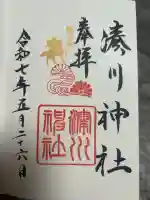 奉拝
湊川神社
湊川神社
令和七年五月二十六日